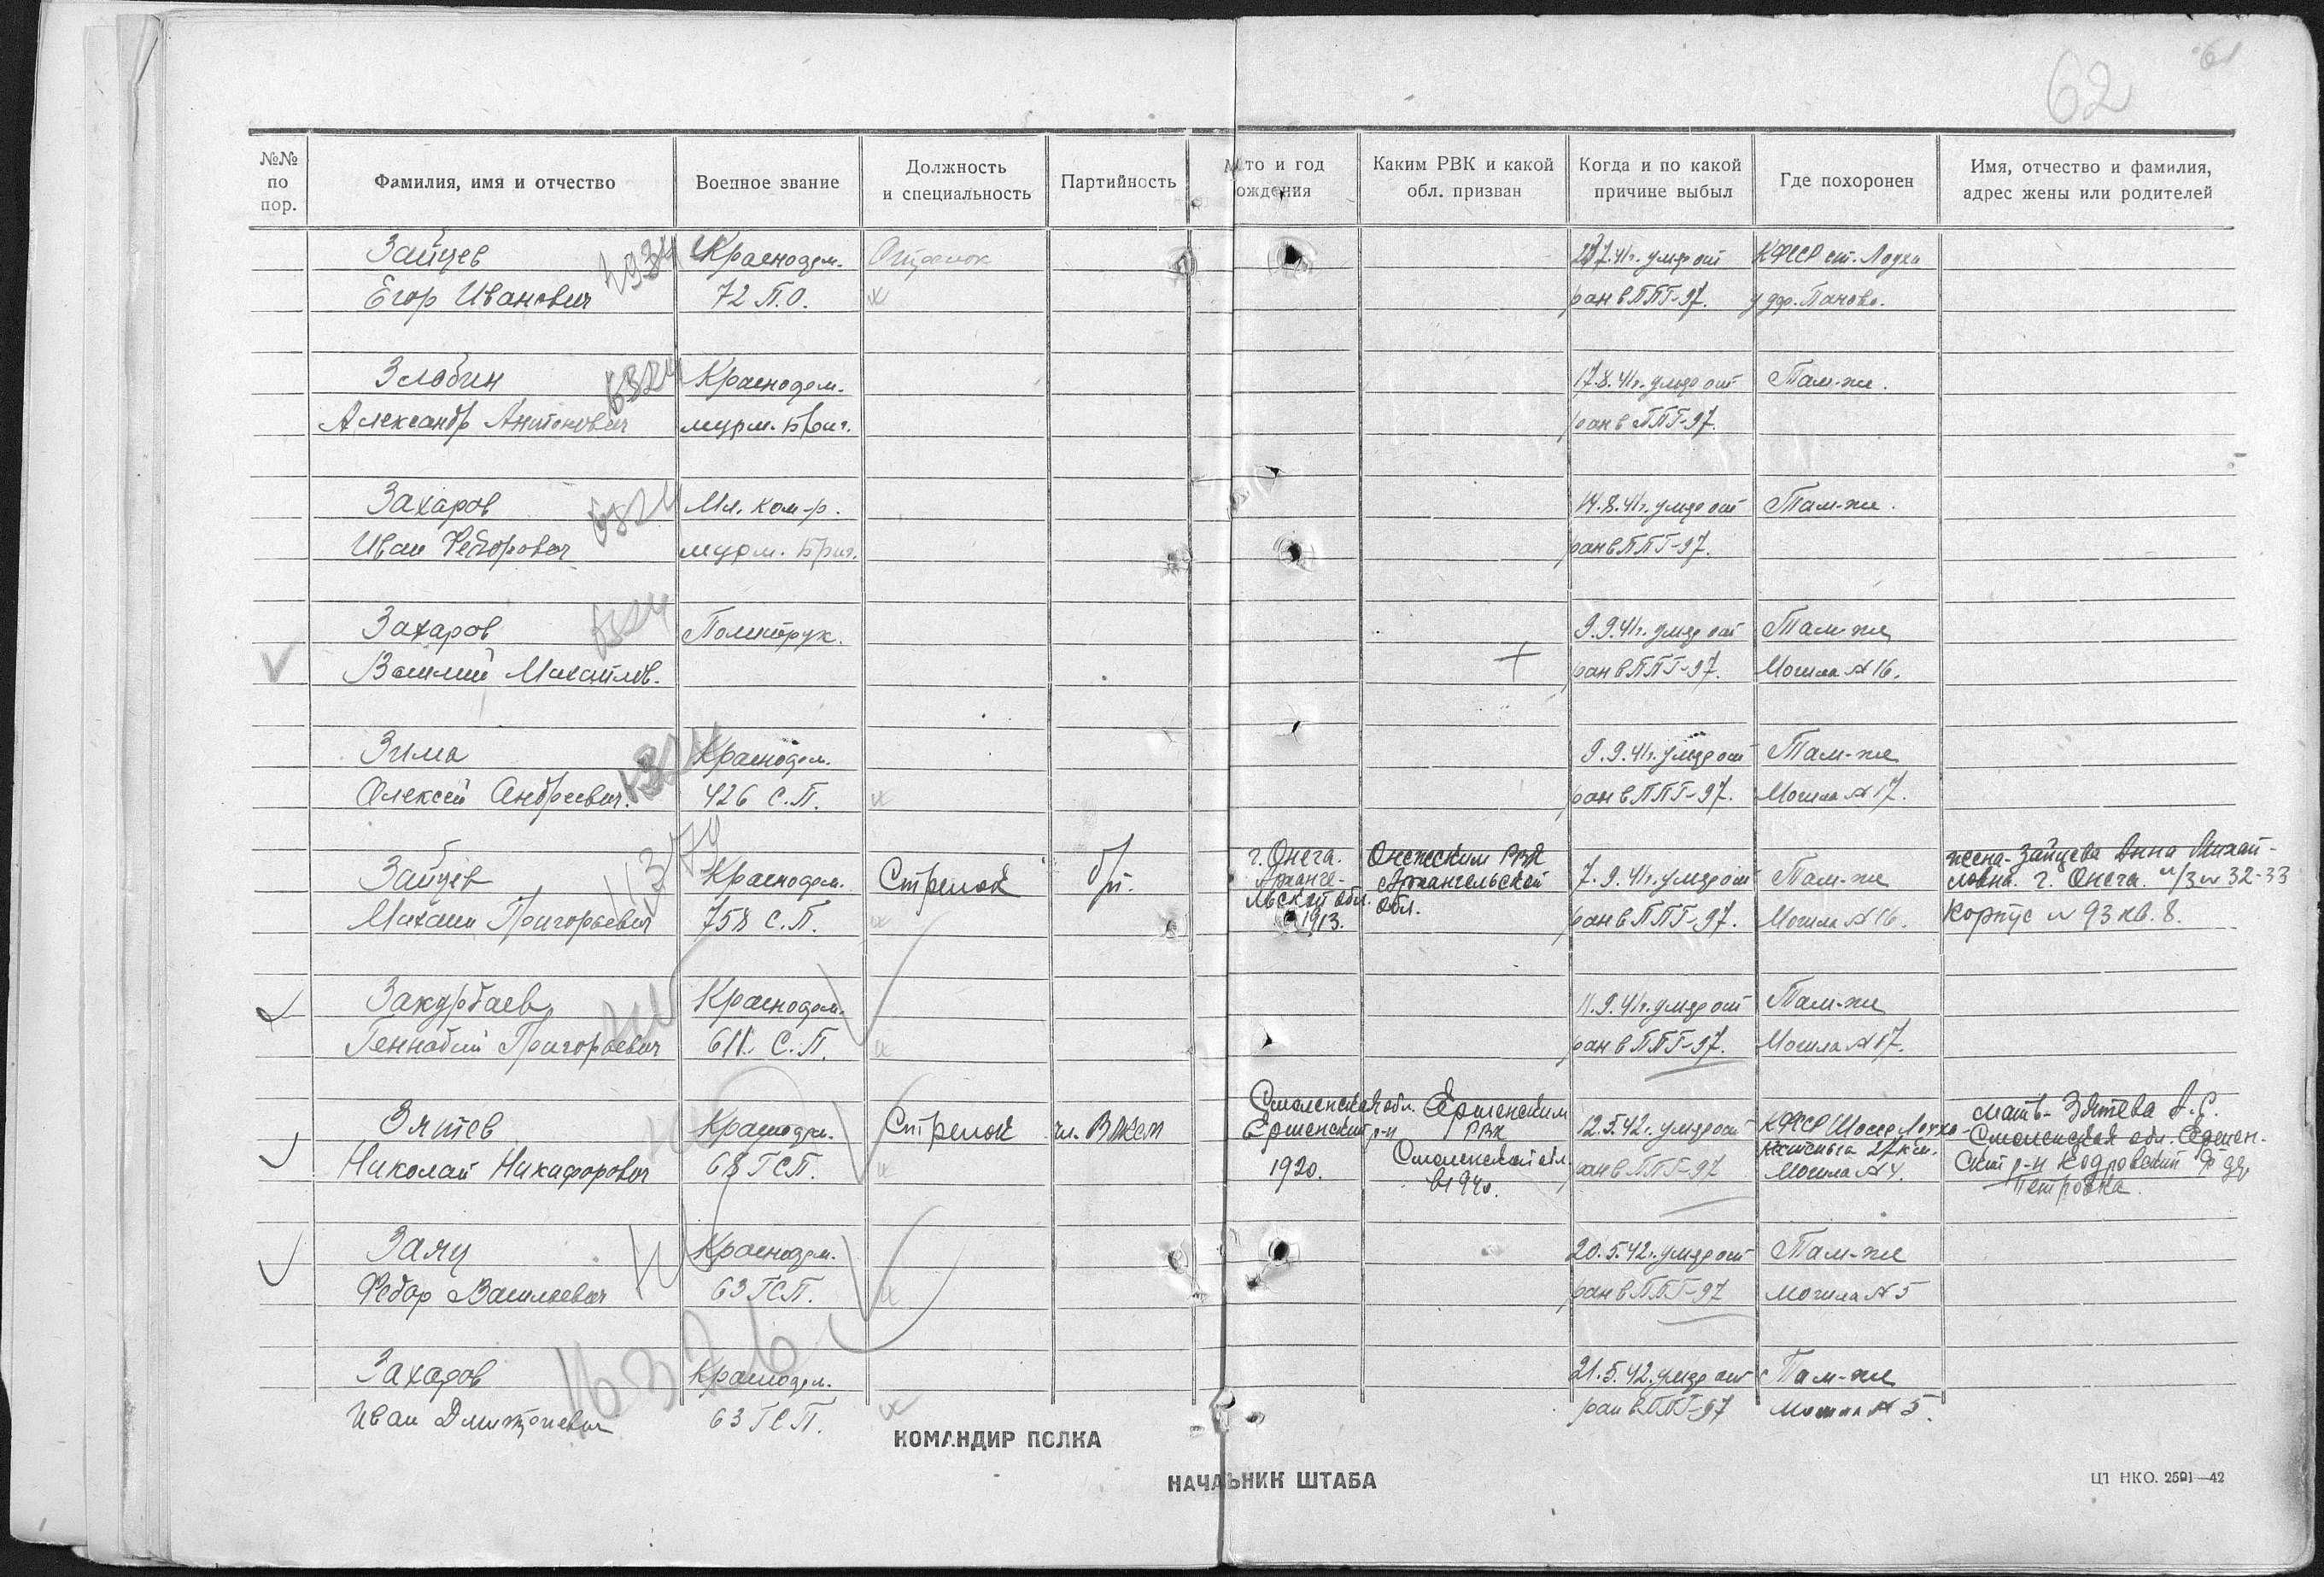 62
61
№№ по пор.
Фамилия, имя и отчество
Военное звание
Должность и специальность
Партийность
Каким РВК и какой обл. призван
Когда и по какой причине выбыл
Где похоронен
Имя, отчество и фамилия, адрес жены или родителей
Зайцев Красноарм. 7.41г. умер от КФССР ст. Лоухи
Егор Иванович 72 П.О. ран в ППГ-97.
Злобин Красноарм. 17.8.41г. умер от Там-же.
Александр Антонович мурм. бриг. ран в ППГ-97.
Захаров Мл. ком-р. 14.8.41г. умер от Там-же.
Иван Федорович мурм. бриг. ран в ППГ-97.
Захаров Политрук. 9.9.41г. умер от Там-же
Василий Михайлов. ран в ППГ-97. Могила №16.
Зима Красноарм. 9.9.41г. умер от Там-же
Алексей Андреевич. 426 С.П. ран в ППГ-97. Могила №17.
Зайцев Красноарм. Стрелок б/п. г. Онега. Архангельской обл. 1913. Онежским РВК Архангельской обл. 7.9.41г. умер от Там-же жена-Зайцева Анна Михайловна. г. Онега. п/з № 32-33
Михаил Григорьевич 758 С.П. ран в ППГ-97. Могила №16. Корпус № 93 кв. 8.
Закурбаев Красноарм. 11.9.41г. умер от Там-же
Геннадий Григорьевич 611. С.П. ран в ППГ-97. Могила №17.
Зятев Красноарм. Стрелок чл. ВЛКСМ Смоленская обл. Ершенский р-н Ершенским РВК 12.5.42г. умер от КФССР мать-Зятева
Николай Никифорович 68 ГСП. 1920. Смоленской обл. в 1940. ран в ППГ-97 27 км. Могила №4. Смоленская обл. Петровка.
Заяц Красноарм. 20.5.42г. умер от Там-же
Федор Васильевич 63 ГСП. ран в ППГ-97 могила №5
Захаров Красноарм. 21.5.42. умер от Там-же
Иван Дмитриевич 63 ГСП. ран в ППГ-97 могила №5.
16326
КОМАНДИР ПОЛКА
НАЧАЛЬНИК ШТАБА
ЦТ НКО. 2591—42